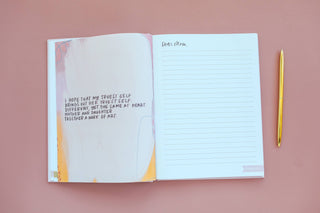 I HOPE THAT MY TRUEST SELF
BRINGS OUT HER TRUEST SELF.
DIFFERENT, YET THE SAME AT HEART
MOTHER AND DAUGHTER
TOGETHER A WORK OF ART